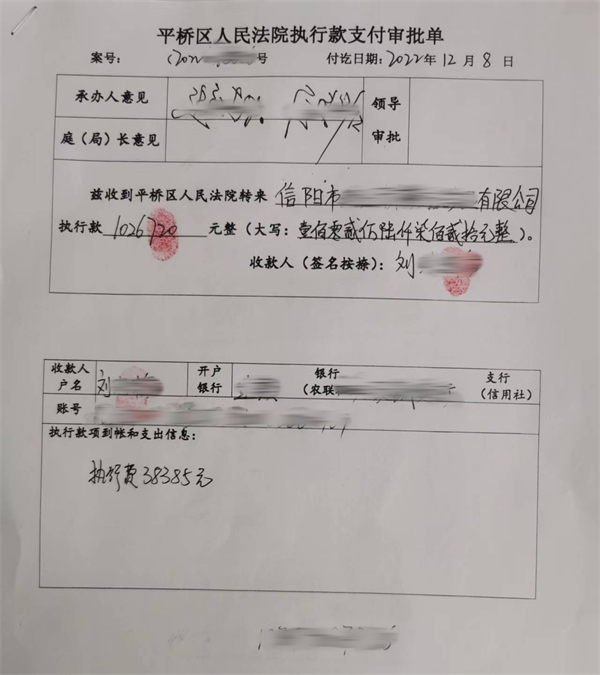 平桥区人民法院执行款支付审批单
案号: (202 号 付讫日期: 2022年12月8日
承办人意见 领导
庭（局）长意见 审批
兹收到平桥区人民法院转来 信阳市 有限公司
执行款 1026720 元整（大写: 壹佰零贰万陆仟柒佰贰拾元整）。
收款人（签名按捺）: 刘
收款人 开户 银行 支行
户名 刘 银行 （农联 （信用社）
账号
执行款项到帐和支出信息:
执行费38385元